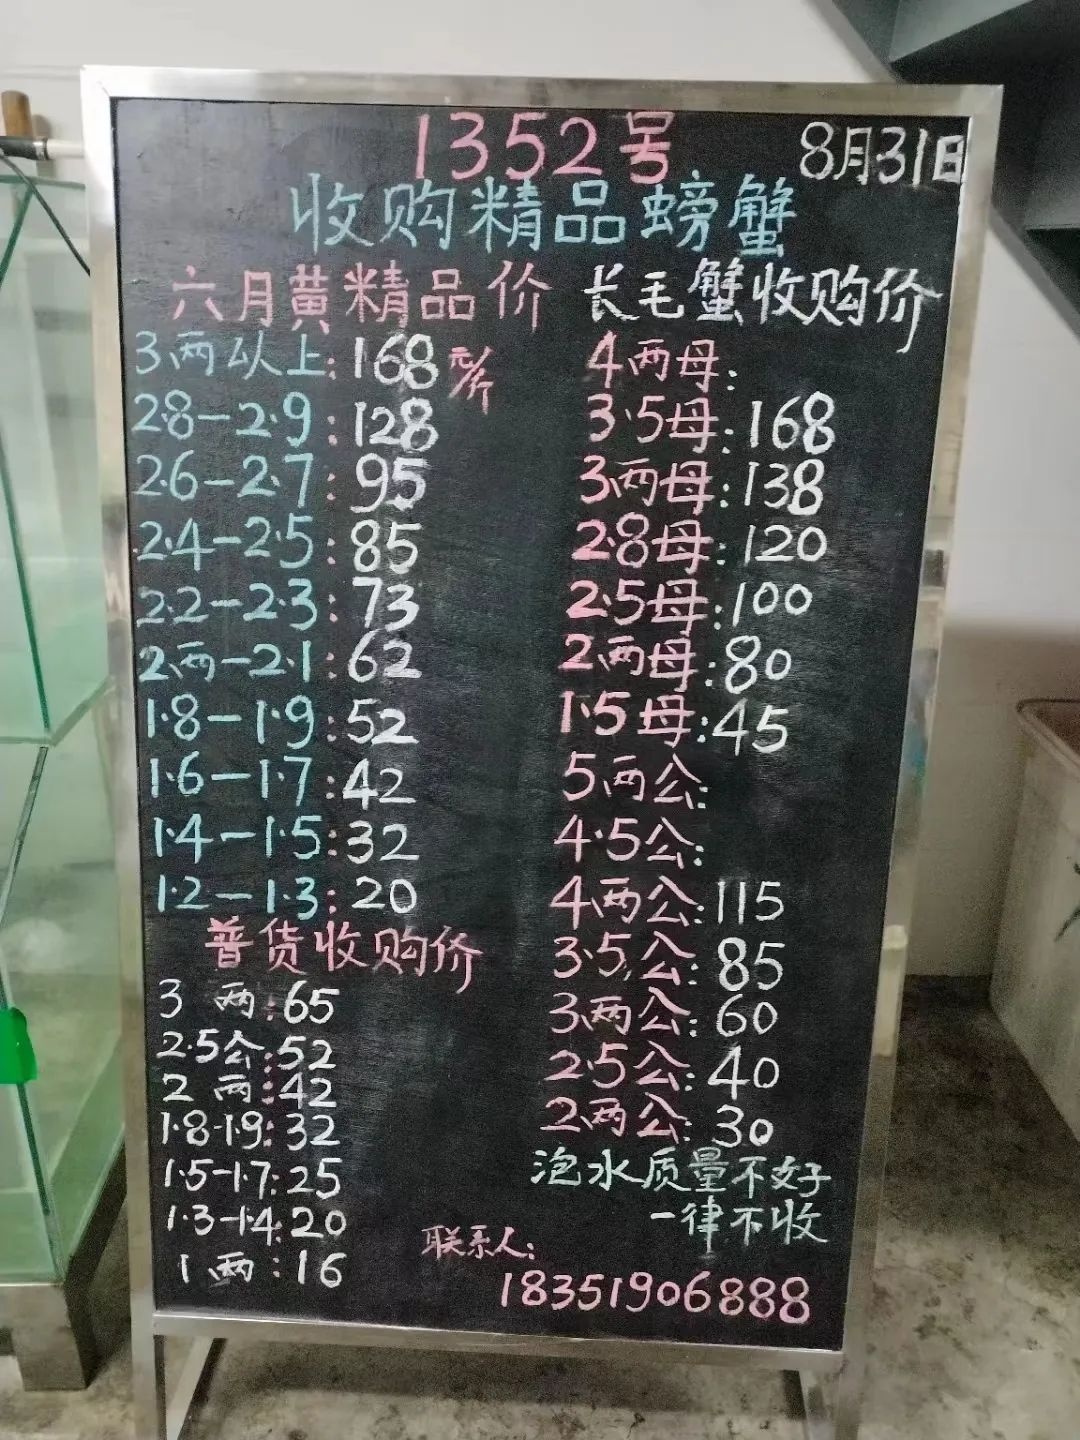 1352号 8月31日
收购精品螃蟹
六月黄精品价
3两以上:168元/斤
2.8-2.9:128
2.6-2.7:95
2.4-2.5:85
2.2-2.3:73
2两-2.1:62
1.8-1.9:52
1.6-1.7:42
1.4-1.5:32
1.2-1.3:20
普货收购价
3两:65
2.5公:52
2两:42
1.8-1.9:32
1.5-1.7:25
1.3-1.4:20
1两:16
长毛蟹收购价
4两母:
3.5母:168
3两母:138
2.8母:120
2.5母:100
2两母:80
1.5母:45
5两公:
4.5公:
4两公:115
3.5公:85
3两公:60
2.5公:40
2两公:30
泡水质量不好
一律不收
联系人:
18351906888